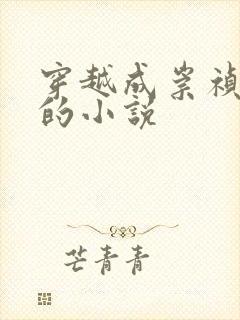 穿越成崇祯
的小说
芒青青